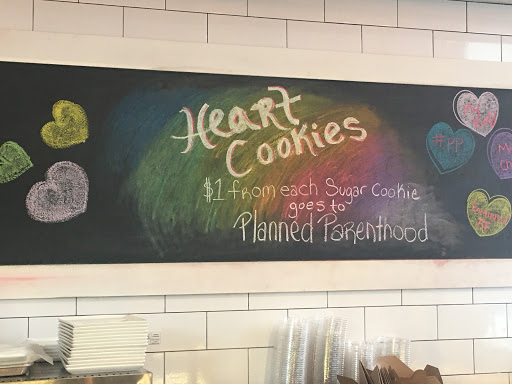 Heart
Cookies
$1 from each Sugar Cookie
goes to
Planned Parenthood
#PP